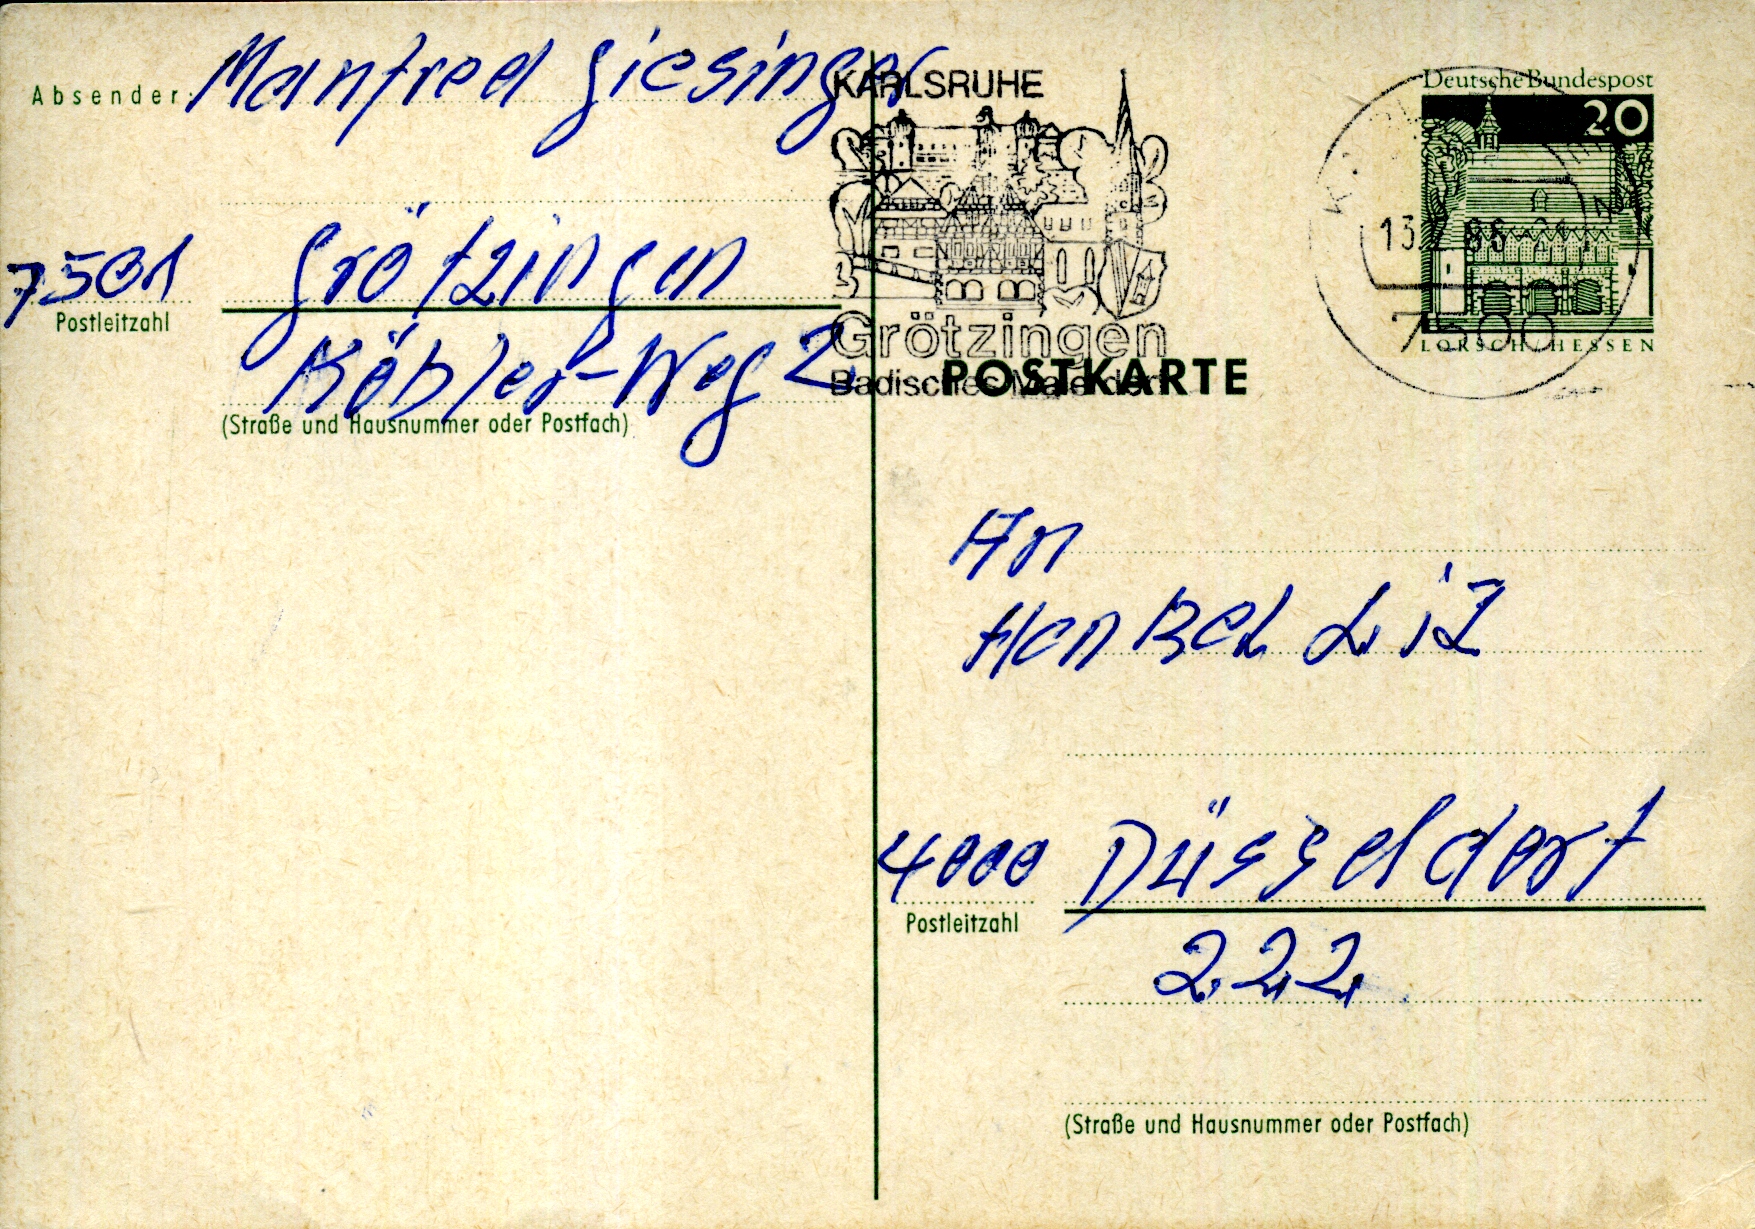 Absender: Manfred Giesinger
7501 Grötzingen
Postleitzahl
Köbler-Weg 2
(Straße und Hausnummer oder Postfach)
KARLSRUHE
Grötzingen
Badisches Malerdorf
Deutsche Bundespost
20
LORSCH/HESSEN
13.
7500
POSTKARTE
An
Henkel
4000 Düsseldorf
Postleitzahl
222
(Straße und Hausnummer oder Postfach)